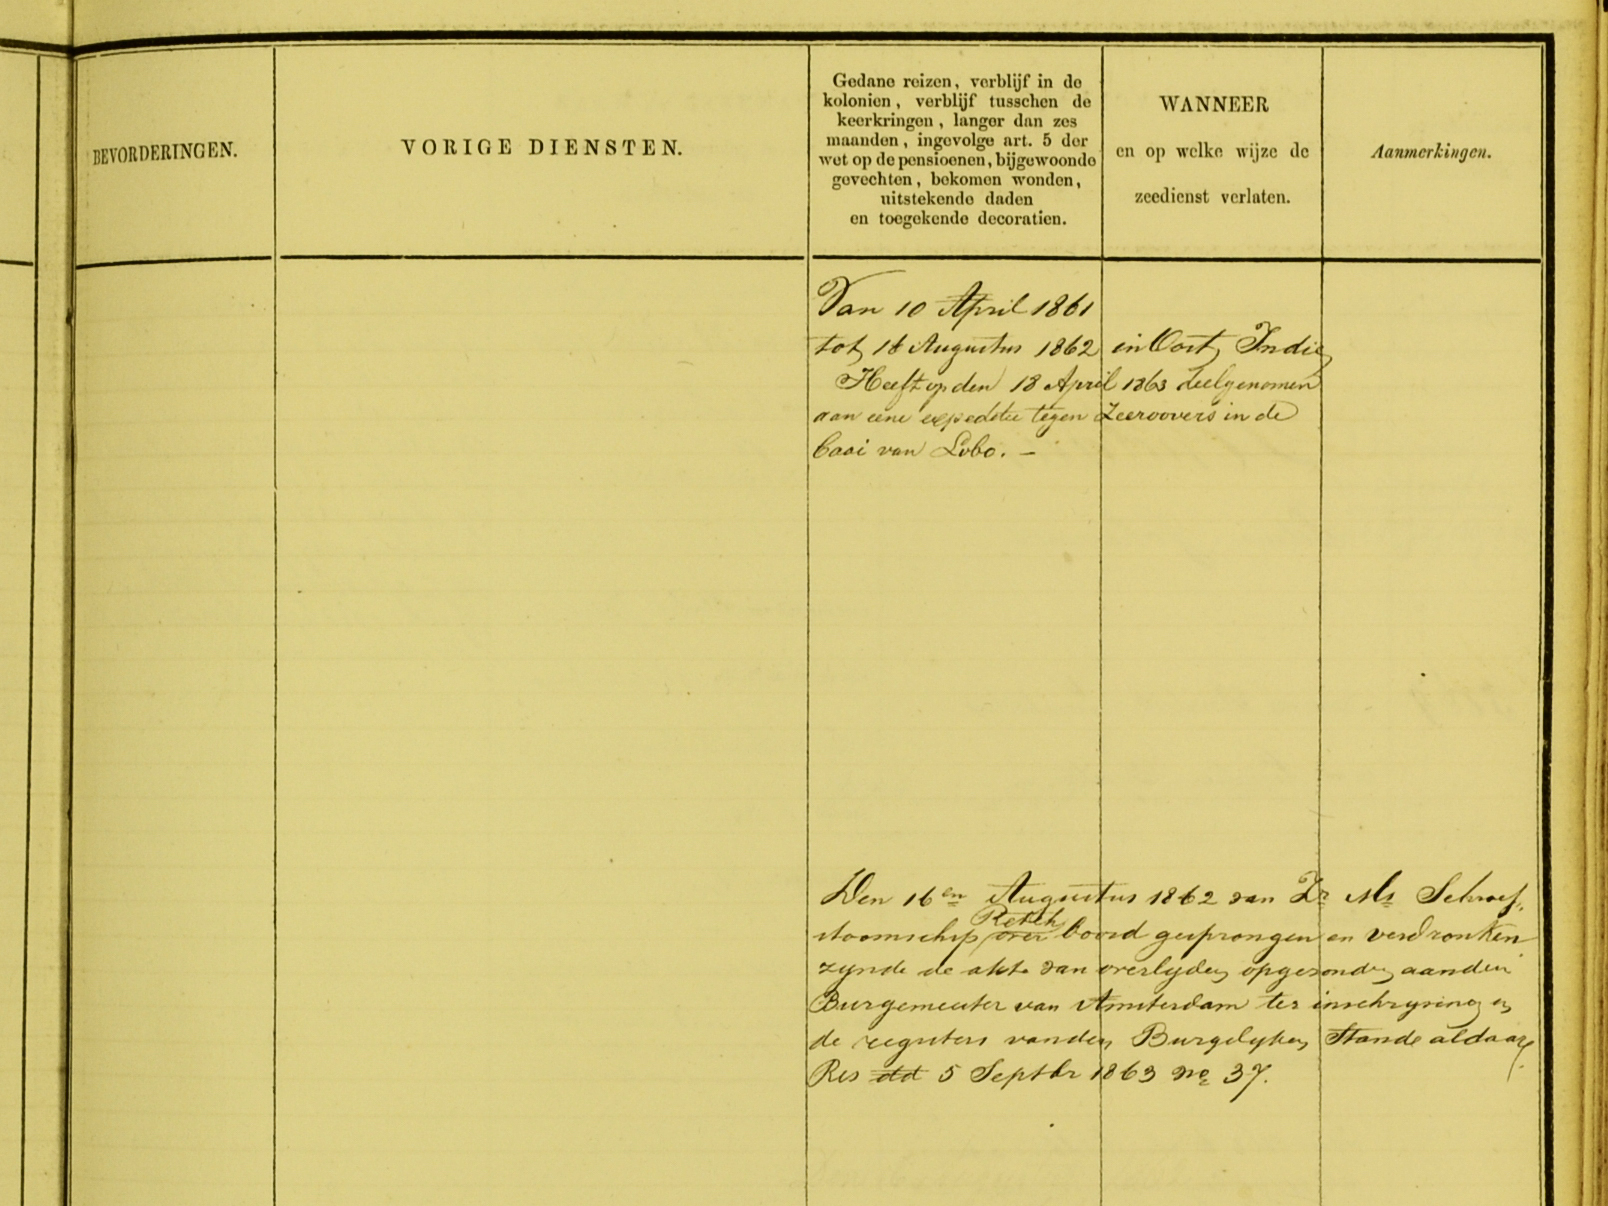 BEVORDERINGEN.
VORIGE DIENSTEN.
Gedane reizen, verblijf in de
kolonien, verblijf tusschen de
keerkringen, langer dan zes
maanden, ingevolge art. 5 der
wet op de pensioenen, bijgewoonde
gevechten, bekomen wonden,
uitstekende daden
en toegekende decoratien.
WANNEER
en op welke wijze de
zeedienst verlaten.
Aanmerkingen.
Van 10 April 1861
tot 16 Augustus 1862 in Oost Indie
Heeft op den 18 April 1863 deelgenomen
aan eene expeditie tegen Zeeroovers in de
baai van Lobo. –
Den 16en Augustus 1862 van Zr Ms Schroef
stoomschip Reteh over boord gesprongen en verdronken
zynde de akte van overlyden opgezonden aanden
Burgemeester van Amsterdam ter inschryving in
de registers vanden Burgelyken Stande aldaar.
Res dd 5 Septbr 1863 No 37.